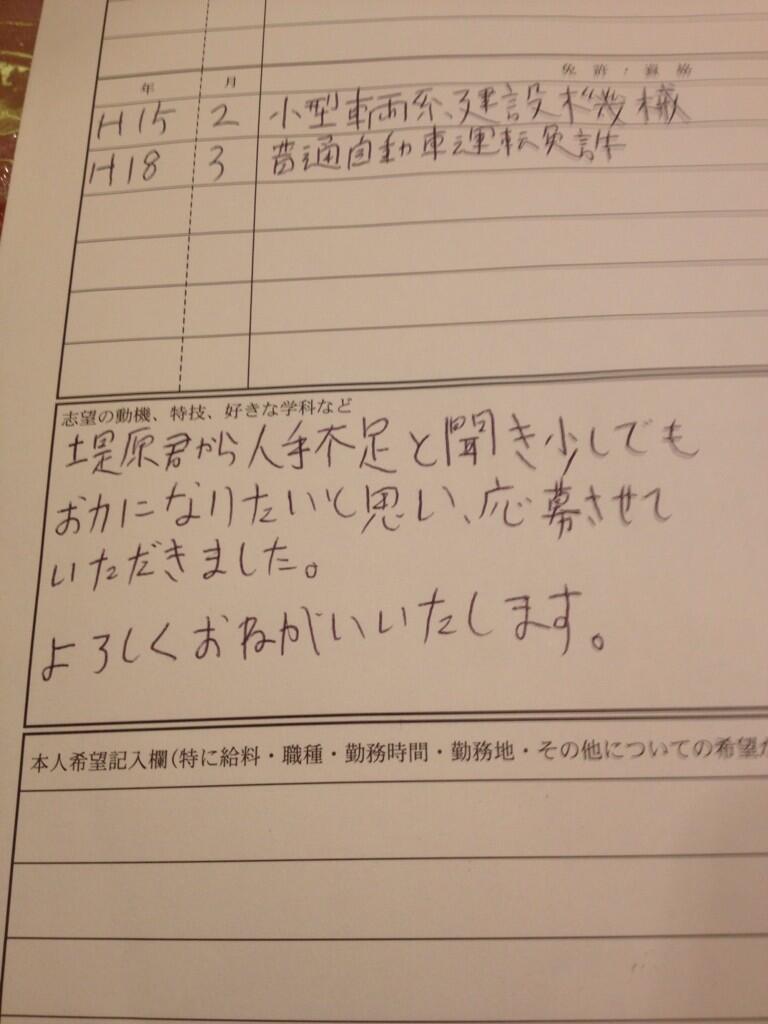 年 月 免許・資格
H15 2 小型車両系建設機械
H18 3 普通自動車運転免許
志望の動機、特技、好きな学科など
堤原君から人手不足と聞き少しでも
お力になりたいと思い、応募させて
いただきました。
よろしくおねがいいたします。
本人希望記入欄(特に給料・職種・勤務時間・勤務地・その他についての希望が